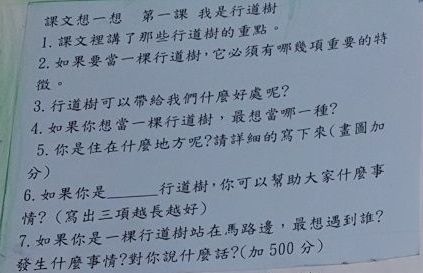 課文想一想　第一課 我是行道樹
1.課文裡講了那些行道樹的重點。
2.如果要當一棵行道樹，它必須有哪幾項重要的特
徵。
3.行道樹可以帶給我們什麼好處呢?
4.如果你想當一棵行道樹，最想當哪一種?
5.你是住在什麼地方呢?請詳細的寫下來(畫圖加
分)
6.如果你是______行道樹，你可以幫助大家什麼事
情?(寫出三項越長越好)
7.如果你是一棵行道樹站在馬路邊，最想遇到誰?
發生什麼事情?對你說什麼話?(加 500 分)